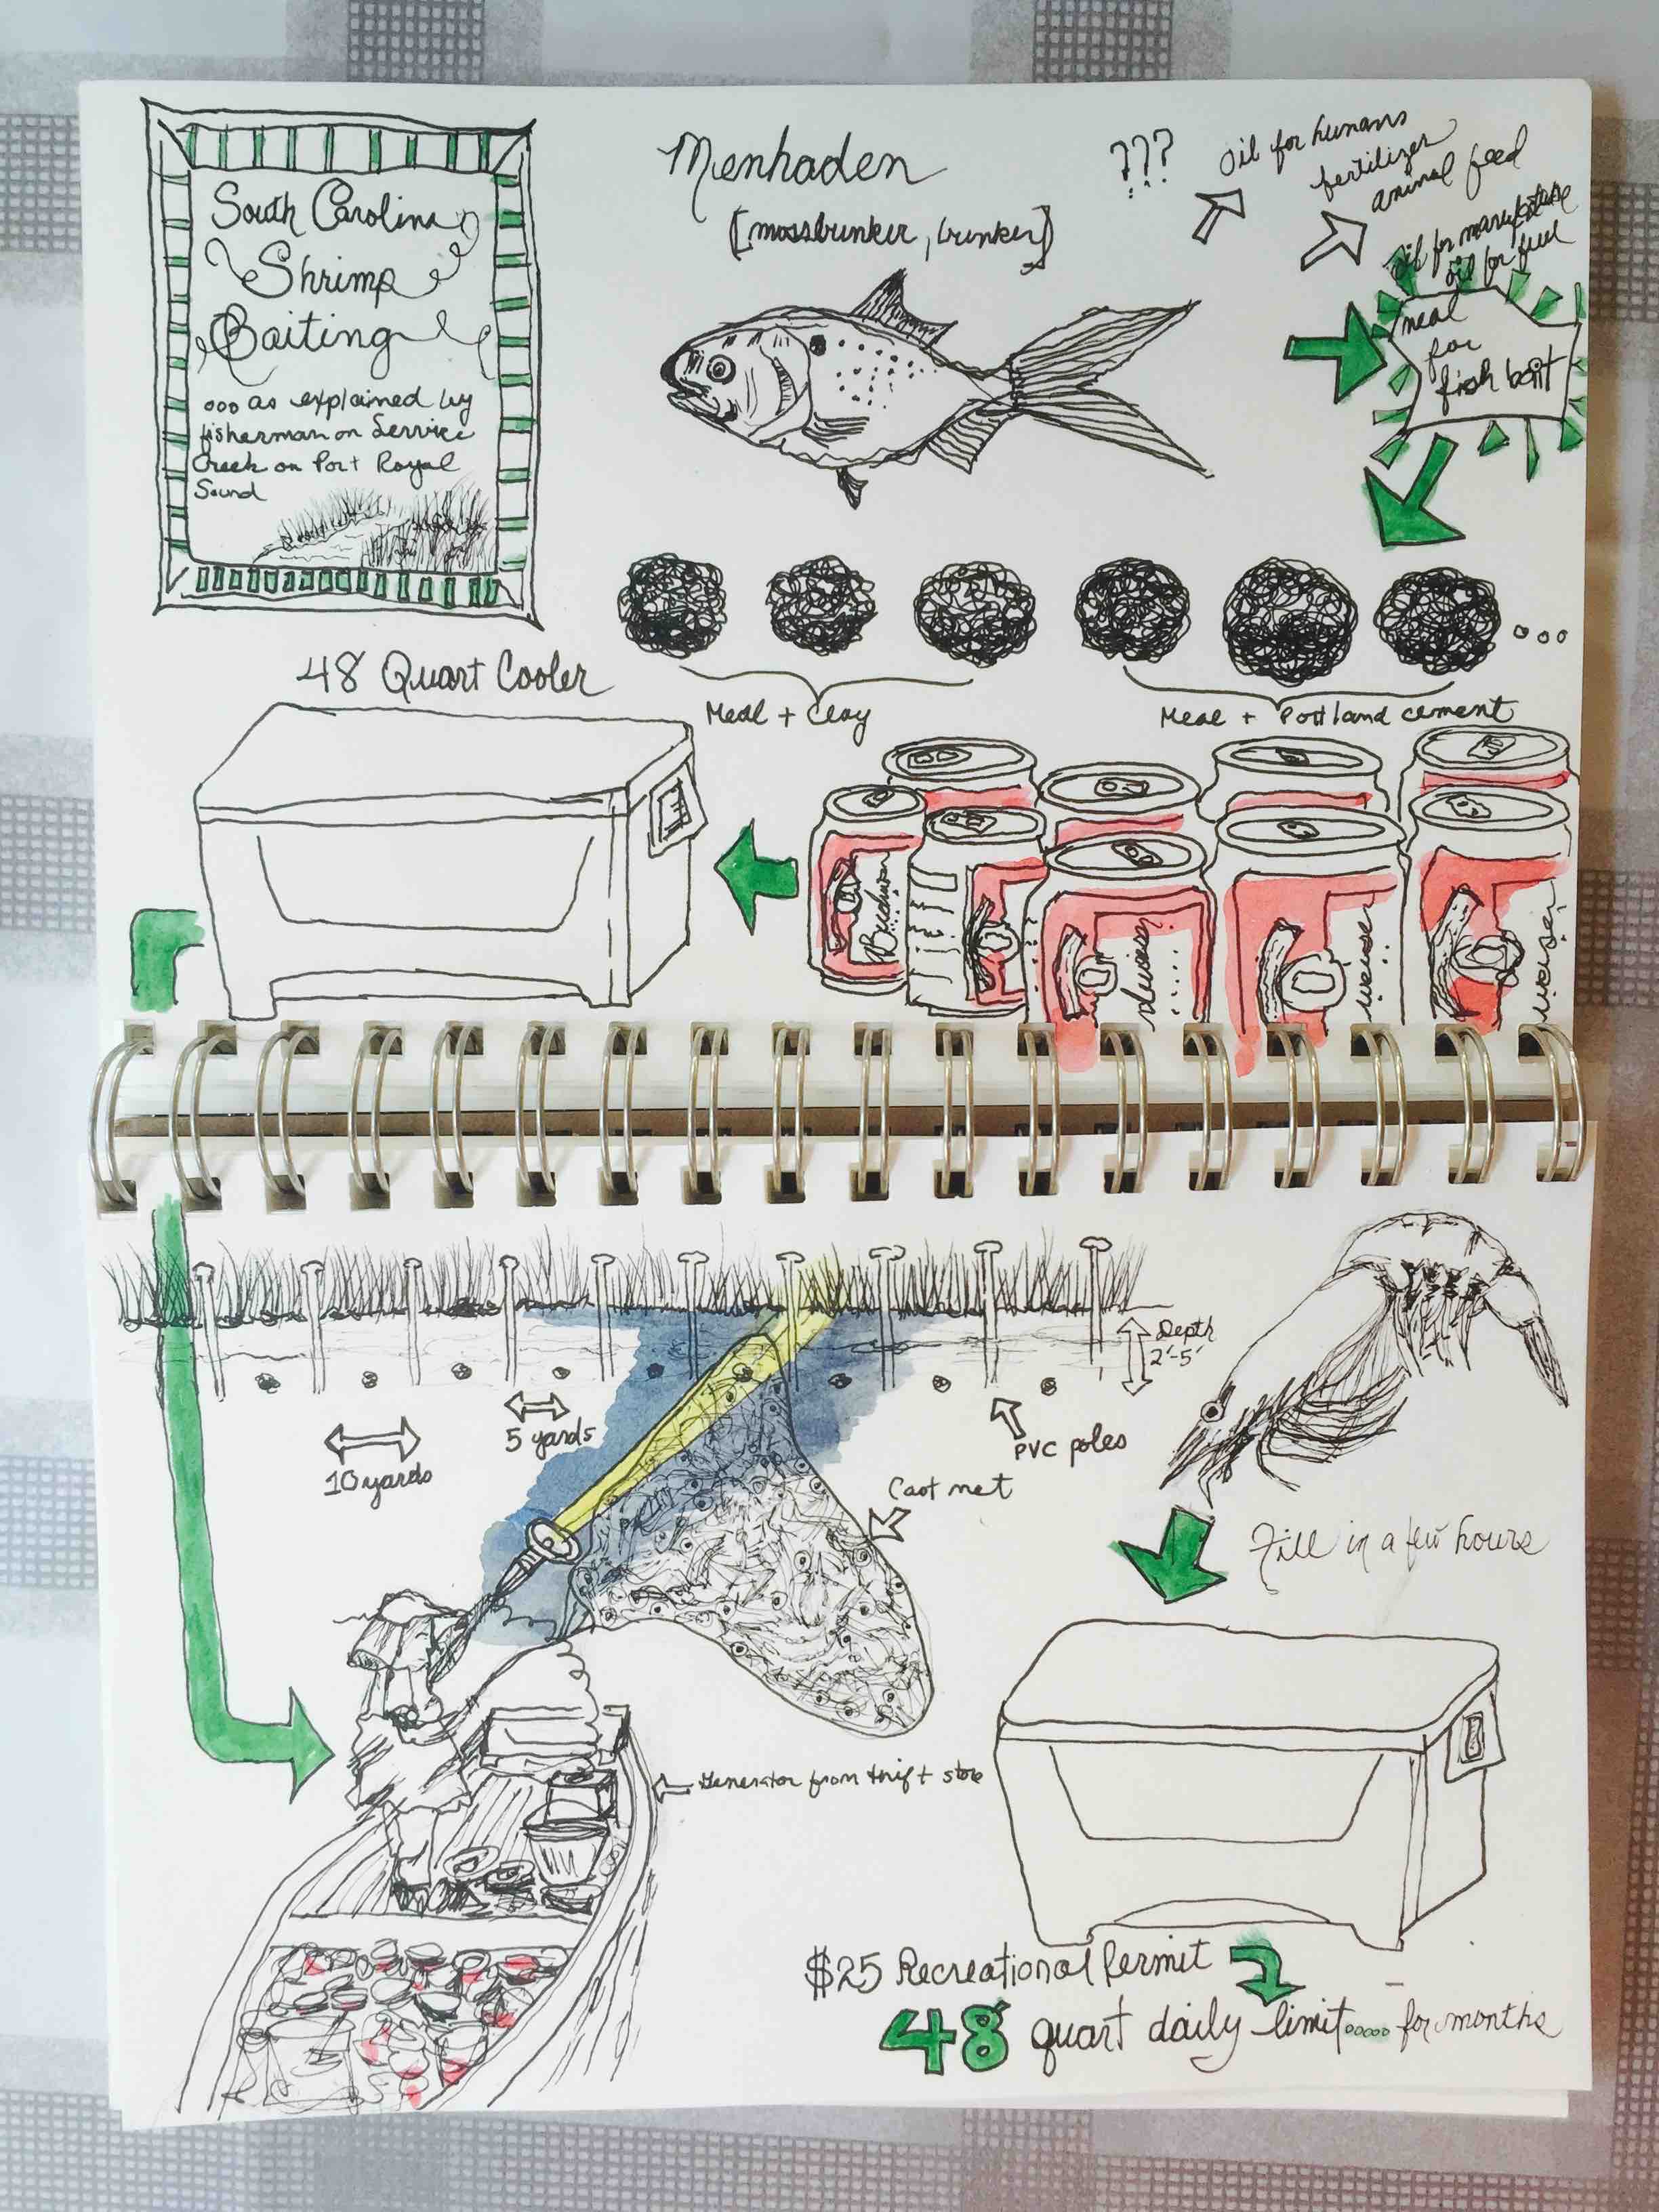 South Carolina
Shrimp
Baiting
ooo as explained by
fisherman on Service
Creek on Port Royal
Sound
Menhaden
[mossbunker, bunker]
???
Oil for humans
fertilizer
animal feed
Oil for manufacture
oil for fuel
meal
for
fish bait
ooo
Meal + Clay
Meal + Portland cement
48 Quart Cooler
Depth
2'-5'
5 yards
10 yards
PVC poles
Cast net
Fill in a few hours
Generator from thrift store
$25 Recreational Permit
48 quart daily limit ooooo for months